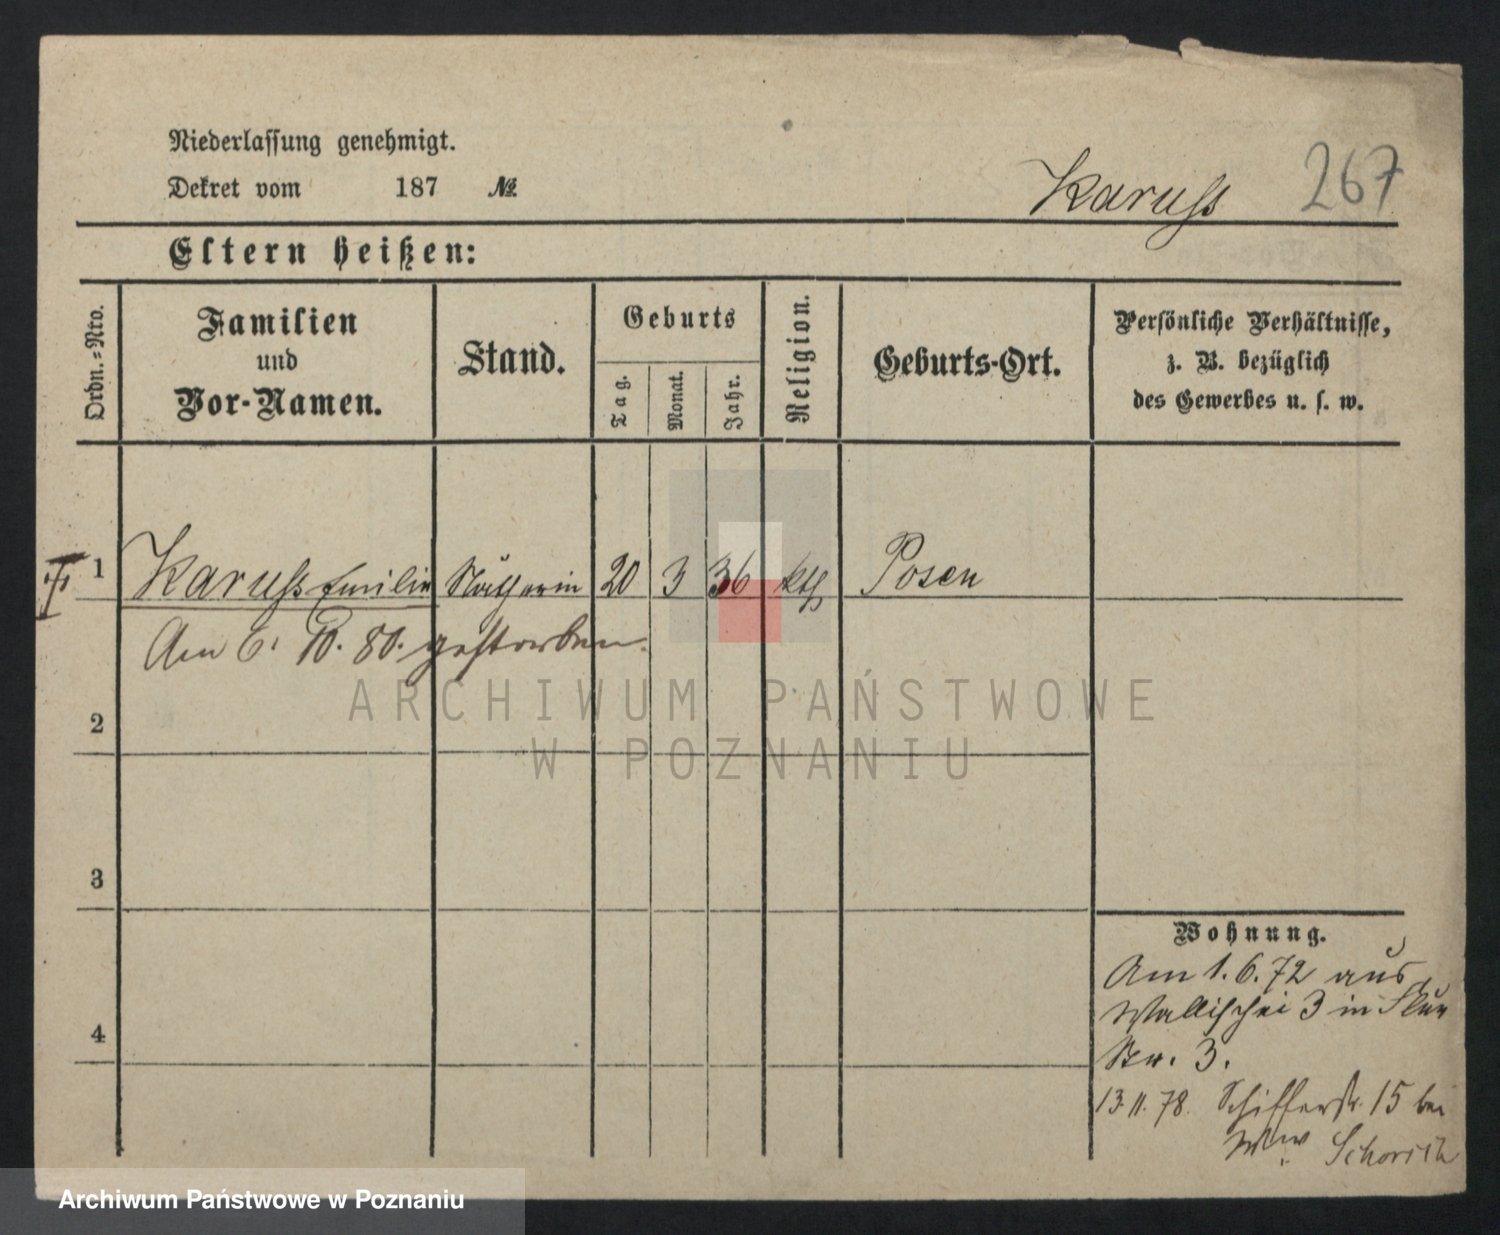 Niederlassung genehmigt.
Dekret vom 187 №
Karuss 267
Eltern heißen:
Ordn.=Nro.
Familien
und
Vor-Namen.
Stand.
Geburts
Tag.
Monat.
Jahr.
Religion.
Geburts-Ort.
Persönliche Verhältnisse,
z. B. bezüglich
des Gewerbes u. s. w.
1 Karuss Emilie Nätherin 20 3 36 kth Posen
Am 6. 10. 80. gestorben.
2
3
4
Wohnung.
Am 1. 6. 72 aus
Wallischei 3 in
Str. 3.
13.11.78. Schifferstr. 15 bei
Ww
ARCHIWUM PAŃSTWOWE
W POZNANIU
Archiwum Państwowe w Poznaniu